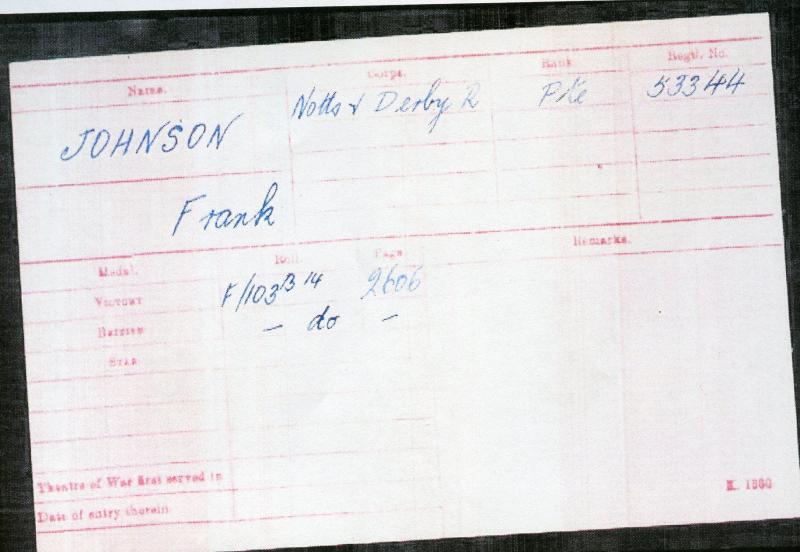 Name. Corps. Rank. Regtl. No.
JOHNSON Notts & Derby R Pte 53344
Frank
Medal. Roll. Page. Remarks.
VICTORY F/103 B 14 2606
BRITISH - do -
STAR
Theatre of War first served in
Date of entry therein
K. 1380